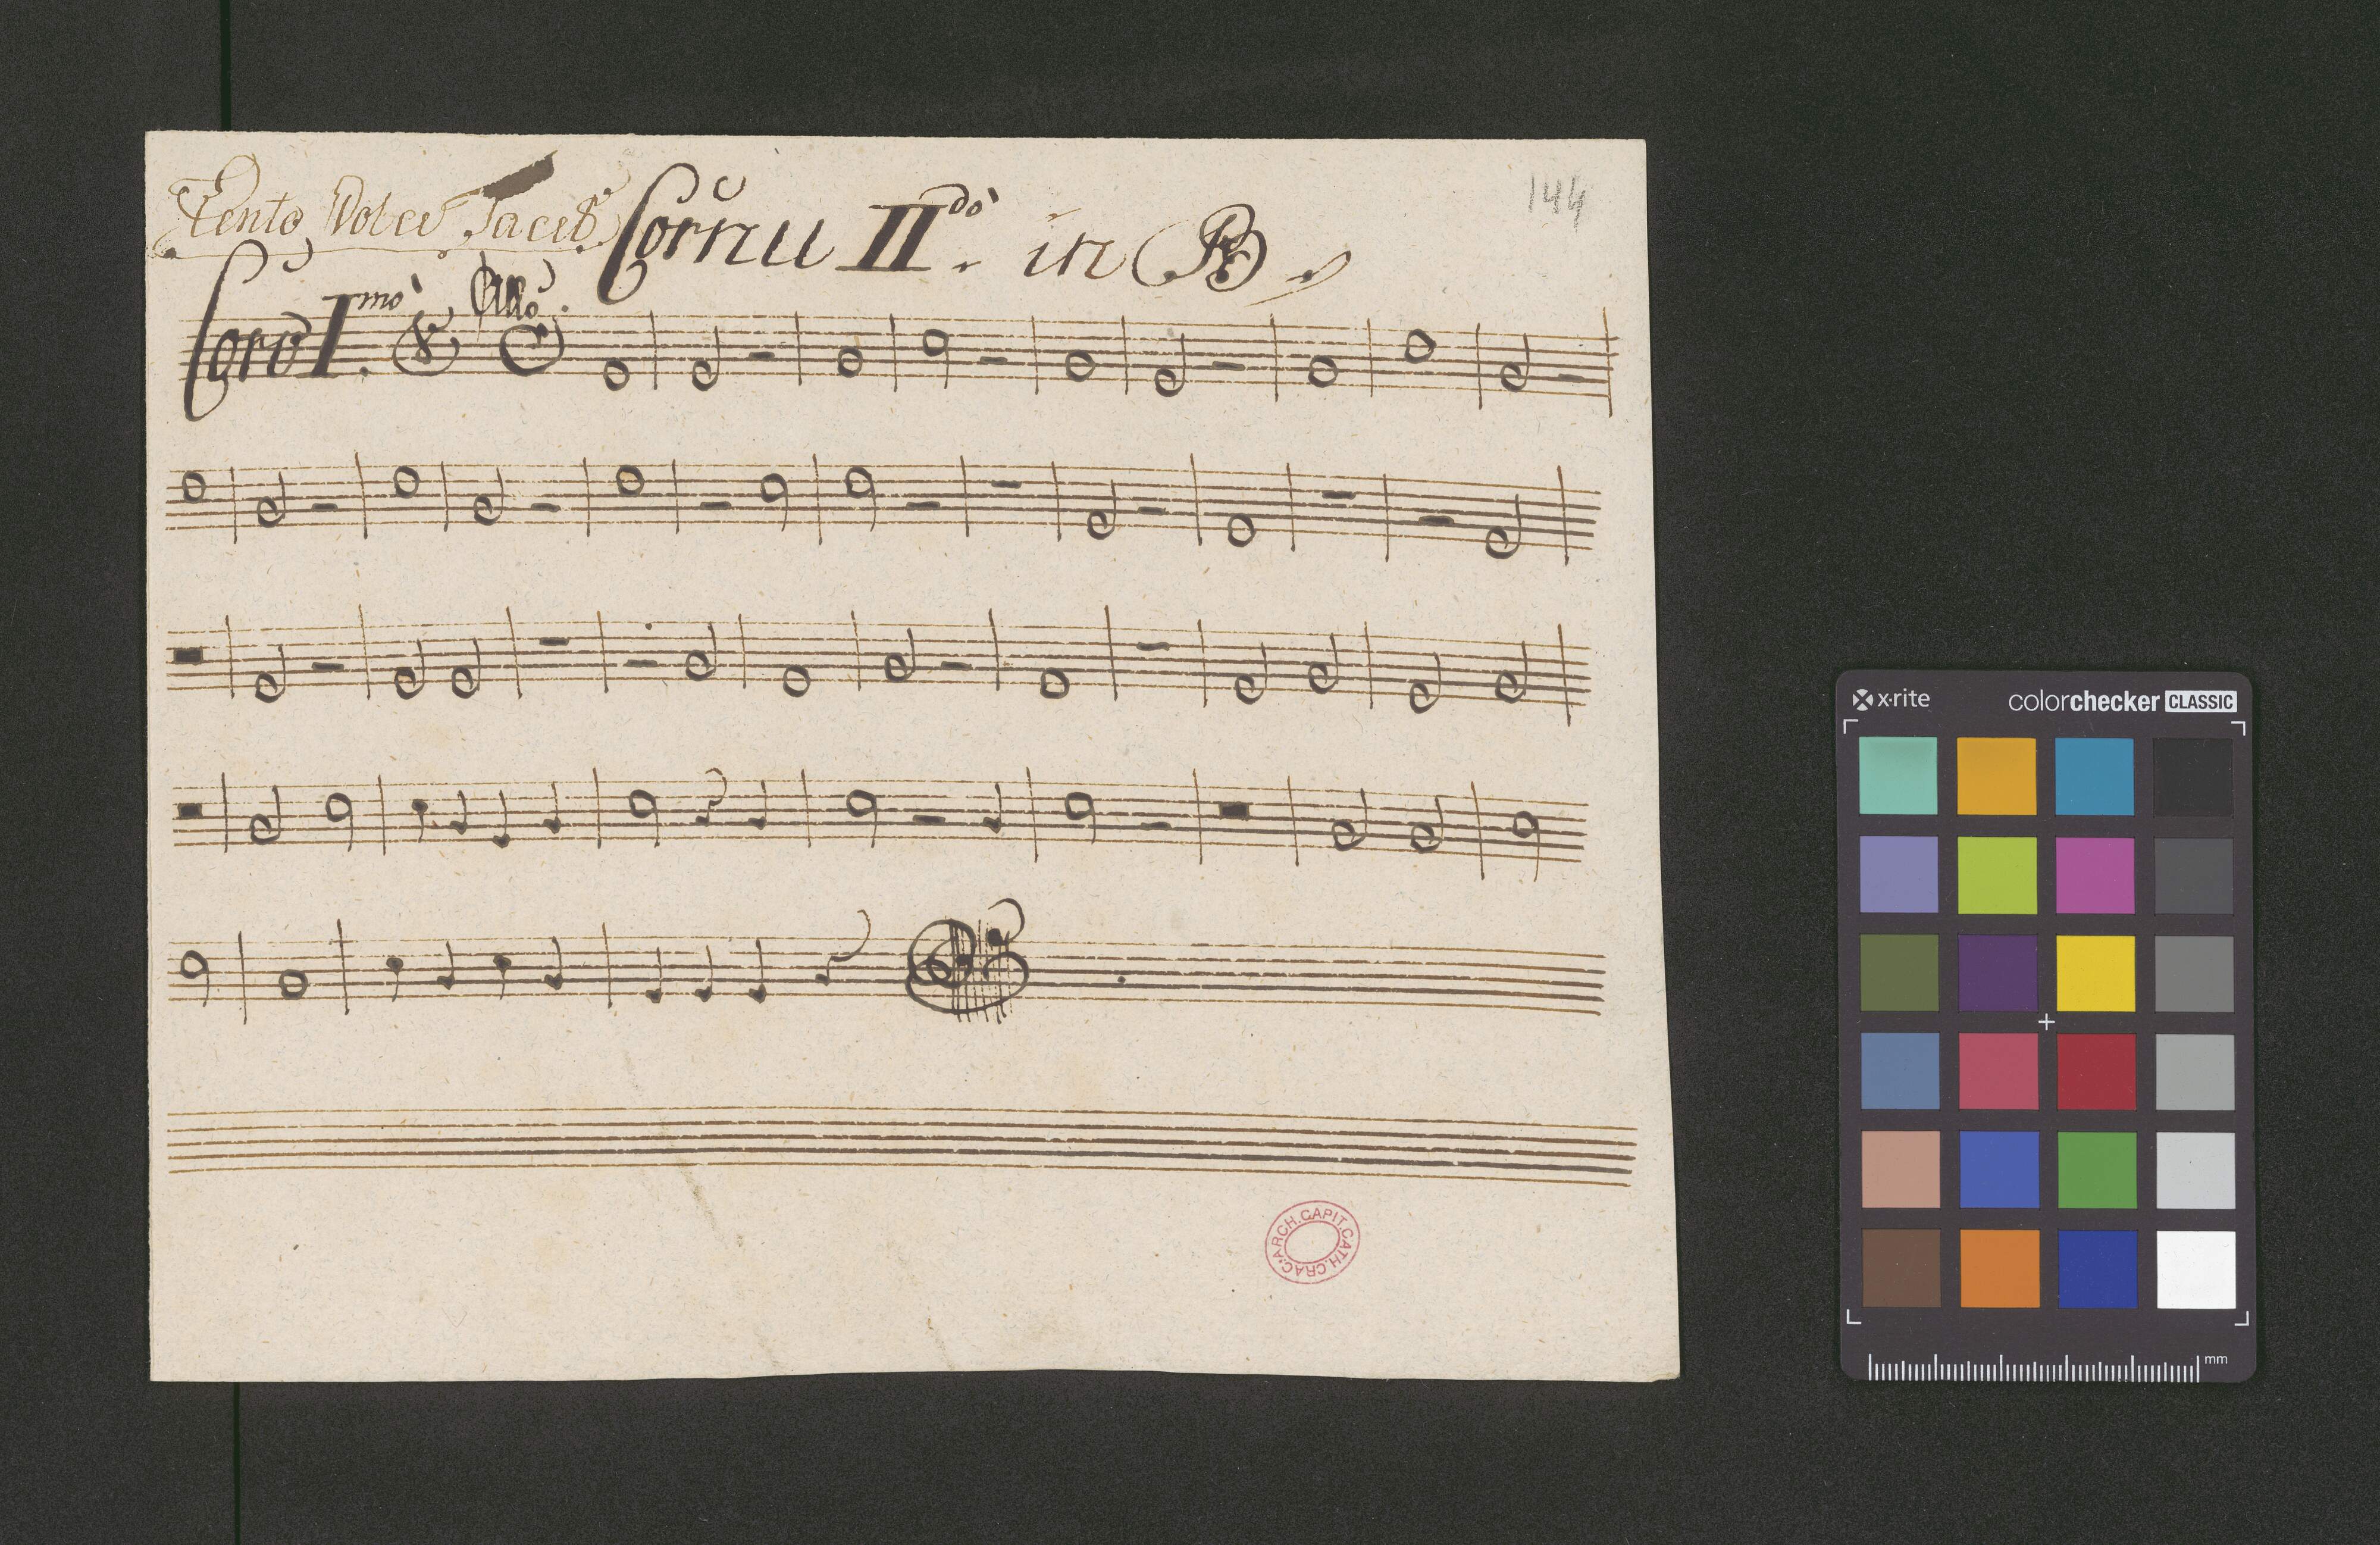 Lento Dolce Tacet
Cornu II.do in B
144
Coro I.mo Allo.
ARCH.CAPIT.CATH.CRAC.
x·rite
colorchecker CLASSIC
mm